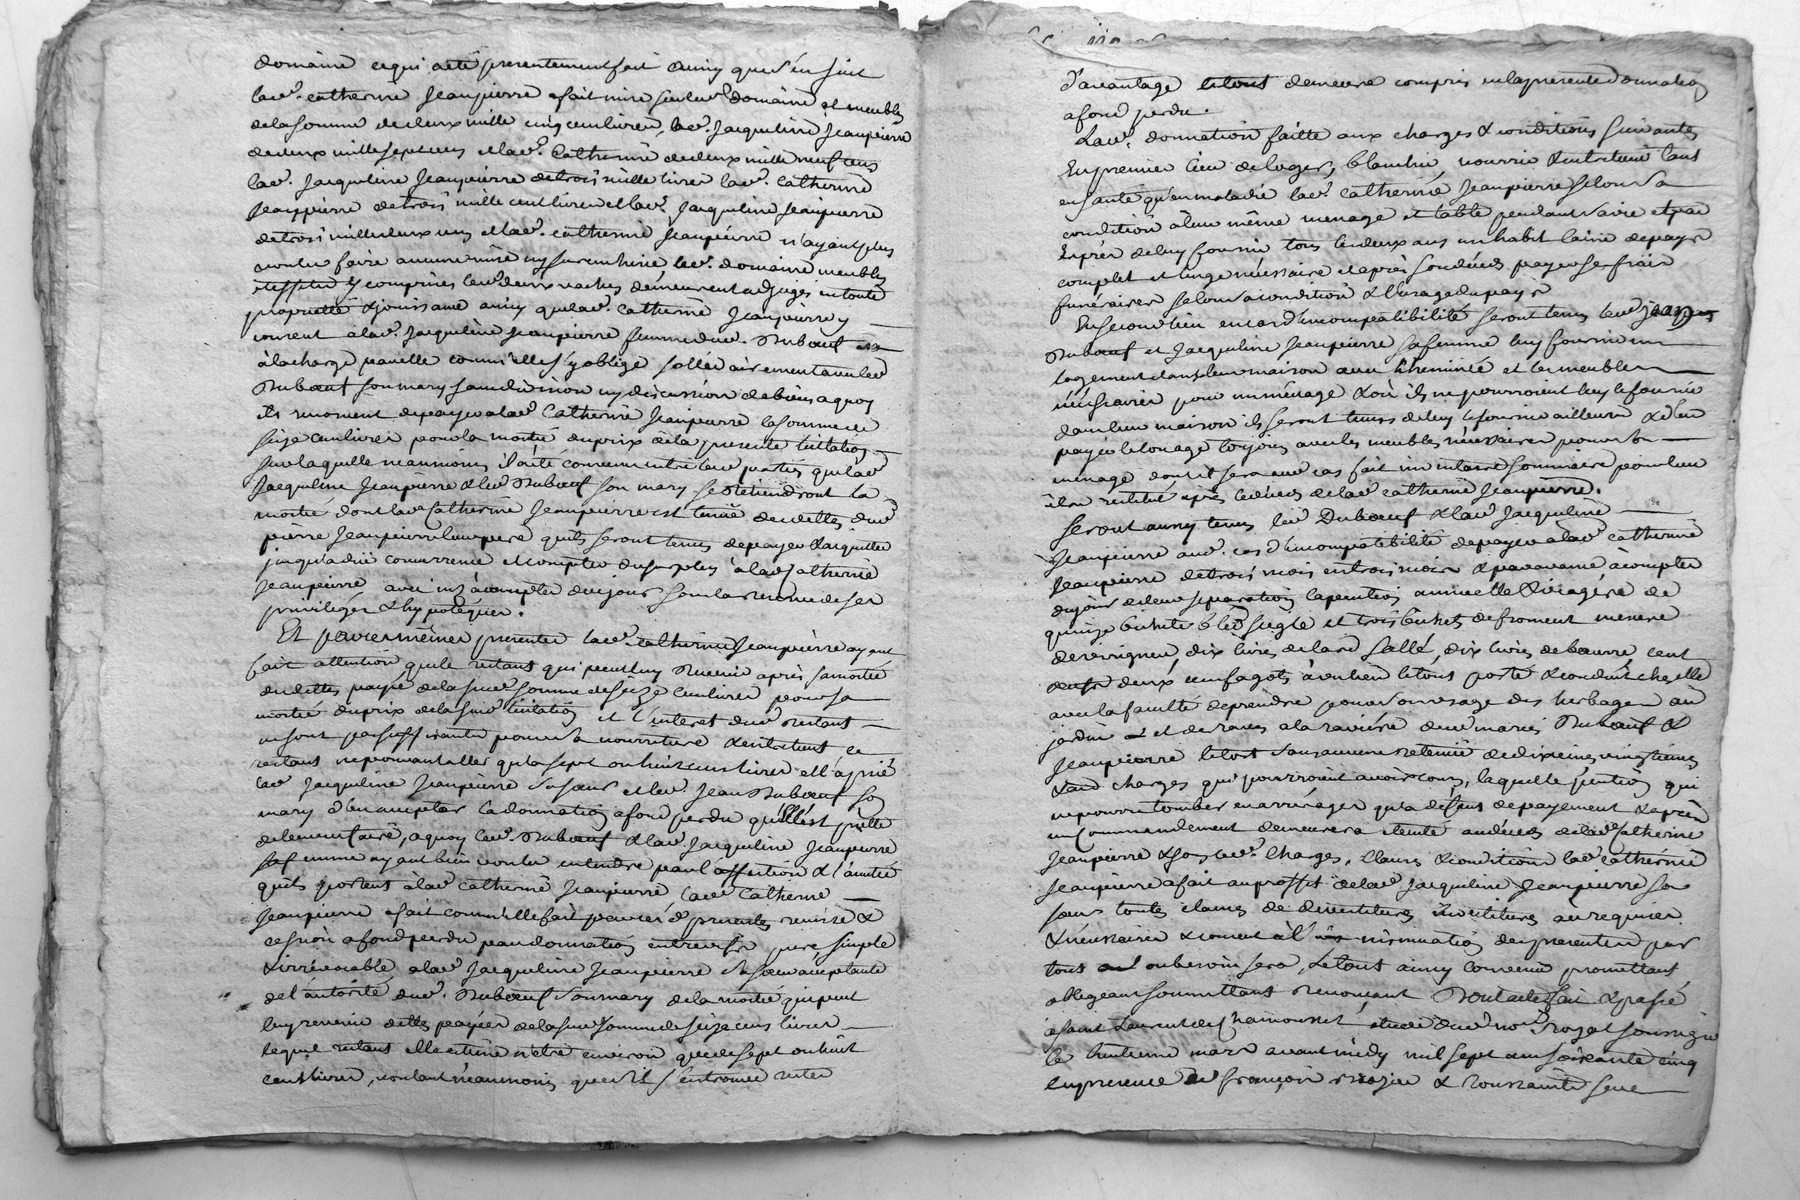 domaine ce qui a eté presentement fait ainsy que s'en suit
lade. catherine Jeanpierre a fait mise sur led. domaine et meubles
de la somme de deux mille cinq cent livres, lad. Jacqueline Jeanpierre
de deux mille sept cens et lad. Catherine de deux mille neuf cens
lad. Jacqueline Jeanpierre de trois mille livres lad. Catherine
Jeanpierre de trois mille cent livres et lad. Jacqueline Jeanpierre
de trois mille deux cens et lad. catherine Jeanpierre n'ayant plus
voulu faire aucune mise ny surenchere led. domaine meubles
et effets y comprises les deux vaches demeurent adjugés en toute
proprieté & jouissance ainsy que lad. Catherine Jeanpierre y
consent a lad. Jacqueline Jeanpierre femme dud. Duboeuf
à la charge par elle comm'elle s'y oblige sollidairement avec led.
Duboeuf son mary sans division ny discussion de biens a quoy
ils renoncent de payer a lad. Catherine Jeanpierre la somme de
seize cent livres pour la moitié du prix de la presente licitation
sur laquelle neanmoins il a été convenu entre les parties que lad.
Jacqueline Jeanpierre & led. Duboeuf son mary se retiendront la
moitié dont lad. Catherine Jeanpierre est tenüe des dettes dud.
pierre Jeanpierre leur pere qu'ils seront tenus de payer & acquitter
jusqu'a düe concurrence et compter du surplus à lad. Catherine
Jeanpierre avec int. à compter de ce jour sous la reserve de ses
privileges & hypoteques.
Et par ces mêmes presentes lad. Catherine Jeanpierre ayant
fait attention que le restant qui peut luy revenir après sa moitié
de dettes payée de la susd. somme de seize cent livres pour sa
moitié du prix de la susd. licitation et l'interet dud. restant
ne sont pas suffisants pour sa nourriture & entretient, ce
restant ne pouvant aller qu'a sept ou huit cens livres et l'a prié
lad. Jacqueline Jeanpierre sa soeur et led. Jean Duboeuf son
mary d'en accepter la donnation a fond perdu qu'elle est preste
de leur en faire, a quoy led. Duboeuf & lad. Jacqueline Jeanpierre
sa femme ayant bien voulu entendre par l'affection & l'amitié
qu'ils portent à lad. Catherine Jeanpierre lad. Catherine
Jeanpierre a fait comm'elle fait par ces d. presentes remise &
cession a fond perdu par donnation entrevifs pure simple
& irrévocable a lad. Jacqueline Jeanpierre sa soeur acceptante
de l'autorité dud. Duboeuf son mary de la moitié qui peut
luy revenir dettes payées de la susd. somme de seize cens livres
lequel restant elle estime n'etre environ que de sept ou huit
cent livres, voulant neanmoins que s'il s'en trouve reter
D'avantage le tout demeure compris en la presente donnation
a fond perdu.
Lad. donnation faitte aux charges & conditions suivantes
En premier lieu de loger, blanchir, nourrir & entretenir tant
en santé qu'en maladie lad. Catherine Jeanpierre selon sa
condition à leur même menage et table pendant sa vie et par
Exprés de luy fournir tous les deux ans un habit laine de pays
complet et linge nécessaire et après son décés payer ses frais
funéraires selon sa condition & l'usage du pays
En second lieu en cas d'incompatibilité seront tenus led. Jean
Duboeuf et Jacqueline Jeanpierre sa femme luy fournir un
logement dans leur maison avec cheminée et les meubles
nécessaires pour un ménage & où ils ne pourroient luy le fournir
dans leur maison ils seront tenus de luy le fournir ailleurs & d'en
payer le louage toujours avec les meubles nécessaires pour son
ménage dont il sera aud. cas fait inventaire sommaire pour leur
être restitué après le décés de lad. catherine Jeanpierre.
Seront aussy tenus led. Duboeuf & lad. Jacqueline
Jeanpierre aud. cas d'incompatibilité de payer a lad. catherine
Jeanpierre de trois mois en trois mois & par avance à compter
du jour de leur separation la pention annuelle & viagére de
quinze bichets bled seigle et trois bichets de froment mesure
de vin, dix livres de lard sallé, dix livres de beurre, cent
deux cent fagots à un lien le tout porté & conduit chez elle
avec la faculté de prendre pour son usage des herbages au
jardin et des raves a la raviére dud. mariés Duboeuf &
Jeanpierre le tout sans aucune retenüe de dixeime vingtiéme
& aud. charges qui pourroient avoir cours, laquelle pention qui
ne pourra tomber en arrérages qu'a défaut de payement & après
un commandement demeurera éteinte au décés de lad. Catherine
Jeanpierre & sous led. charges, clauses & conditions lad. Catherine
Jeanpierre a fait au proffit de lad. Jacqueline Jeanpierre sa
soeur toutes clauses de devestitures investitures au requises
& nécessaires & consent à l'insinuation des presentes par
tout ou besoin sera, Le tout ainsy convenu promettant
obligeant soumettant renonçant Dont acte fait & passé
à saint Laurent de Chamousset étude dud. no. Royal soussigné
le huitieme mars avant midy mil sept cens soixante cinq
En presence de françois & toussainte